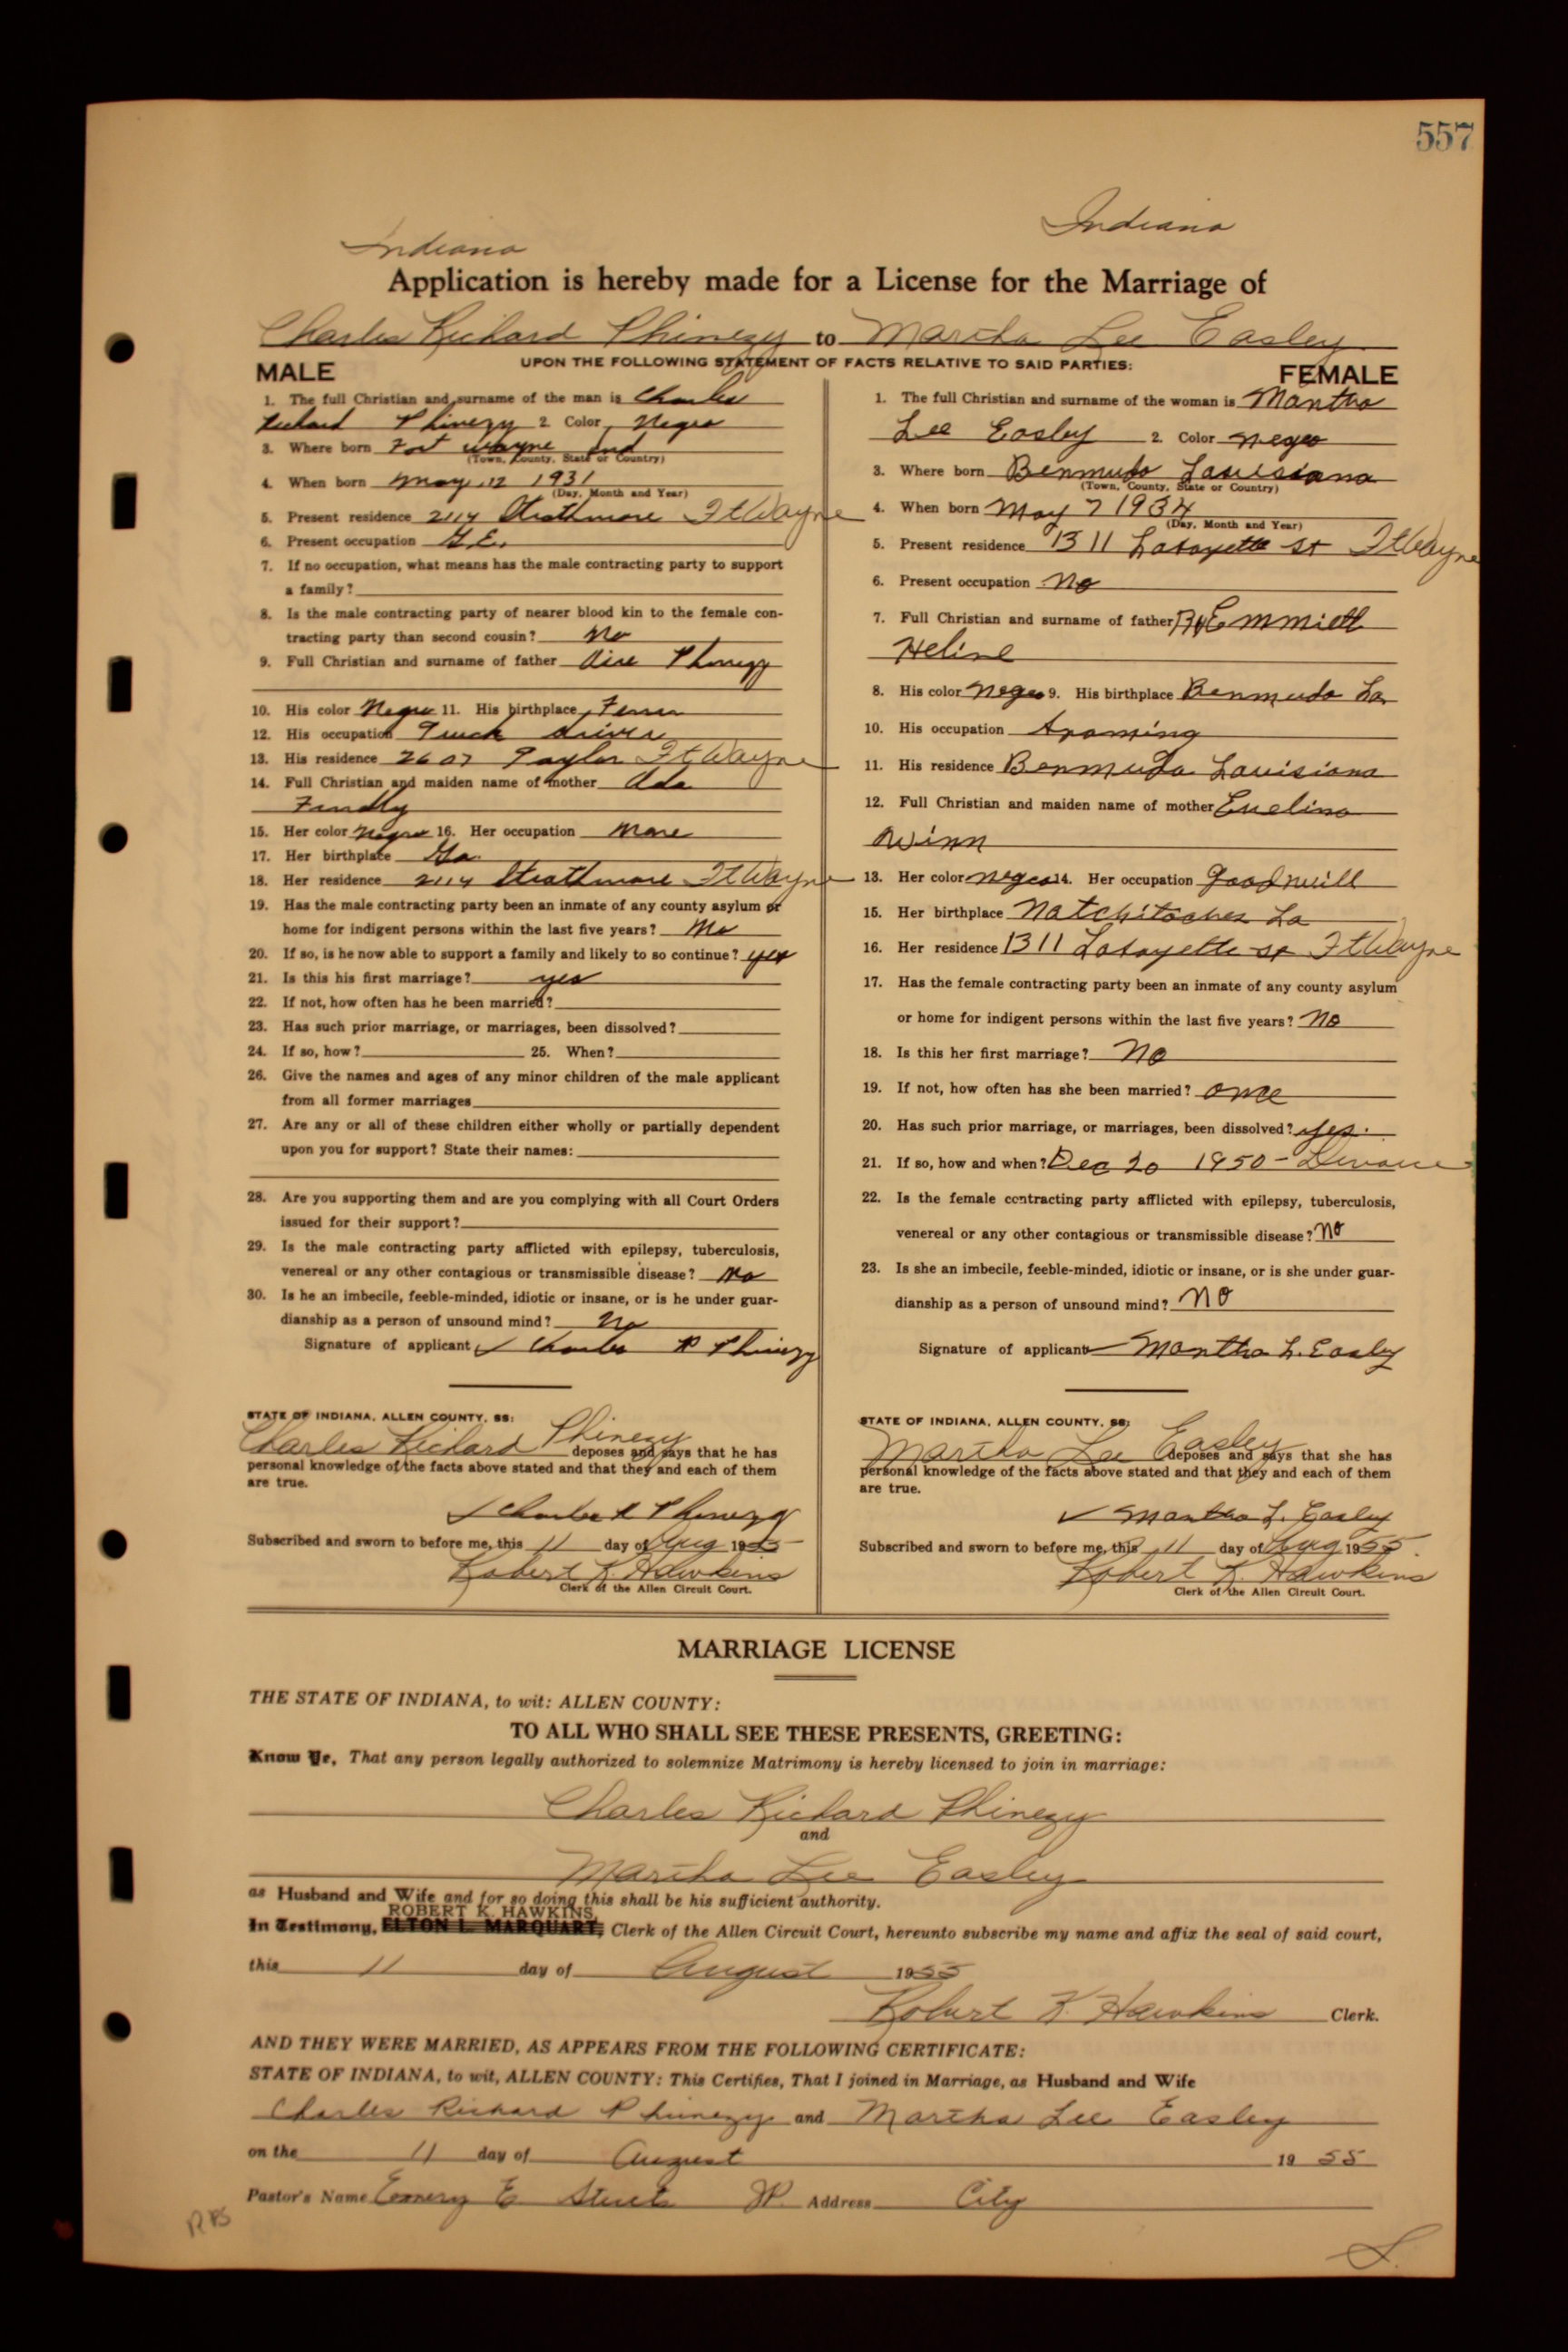 557
Indiana
Indiana
Application is hereby made for a License for the Marriage of
Charles Richard Phinezy to Martha Lee Easley
UPON THE FOLLOWING STATEMENT OF FACTS RELATIVE TO SAID PARTIES:
MALE
1. The full Christian and surname of the man is Charles
Richard Phinezy 2. Color Negro
3. Where born Fort Wayne Ind
(Town, County, State or Country)
4. When born May 12 1931
(Day, Month and Year)
5. Present residence 2114 Strathmore Ft Wayne
6. Present occupation G.E.
7. If no occupation, what means has the male contracting party to support
a family?
8. Is the male contracting party of nearer blood kin to the female con-
tracting party than second cousin? No
9. Full Christian and surname of father Phinezy
10. His color Negro 11. His birthplace
12. His occupation Truck driver
13. His residence 2607 Taylor Ft Wayne
14. Full Christian and maiden name of mother Ada
15. Her color Negro 16. Her occupation
17. Her birthplace Ga
18. Her residence 2114 Strathmore Ft Wayne
19. Has the male contracting party been an inmate of any county asylum or
home for indigent persons within the last five years? No
20. If so, is he now able to support a family and likely to so continue? yes
21. Is this his first marriage? yes
22. If not, how often has he been married?
23. Has such prior marriage, or marriages, been dissolved?
24. If so, how? 25. When?
26. Give the names and ages of any minor children of the male applicant
from all former marriages
27. Are any or all of these children either wholly or partially dependent
upon you for support? State their names:
28. Are you supporting them and are you complying with all Court Orders
issued for their support?
29. Is the male contracting party afflicted with epilepsy, tuberculosis,
venereal or any other contagious or transmissible disease? No
30. Is he an imbecile, feeble-minded, idiotic or insane, or is he under guar-
dianship as a person of unsound mind? No
Signature of applicant Charles R Phinezy
STATE OF INDIANA, ALLEN COUNTY, SS:
Charles Richard Phinezy deposes and says that he has
personal knowledge of the facts above stated and that they and each of them
are true.
Charles R Phinezy
Subscribed and sworn to before me, this 11 day of Aug 1955
Robert K Hawkins
Clerk of the Allen Circuit Court.
FEMALE
1. The full Christian and surname of the woman is Martha
Lee Easley 2. Color Negro
3. Where born Bermuda Louisiana
(Town, County, State or Country)
4. When born May 7 1934
(Day, Month and Year)
5. Present residence 1311 Lafayette St Ft Wayne
6. Present occupation No
7. Full Christian and surname of father Emmiett
Heline
8. His color Negro 9. His birthplace Bermuda La
10. His occupation
11. His residence Bermuda Louisiana
12. Full Christian and maiden name of mother Evelina
Winn
13. Her color Negro 14. Her occupation Goodwill
15. Her birthplace Natchitoches La
16. Her residence 1311 Lafayette St Ft Wayne
17. Has the female contracting party been an inmate of any county asylum
or home for indigent persons within the last five years? No
18. Is this her first marriage? No
19. If not, how often has she been married? once
20. Has such prior marriage, or marriages, been dissolved? yes.
21. If so, how and when? Dec 20 1950 -
22. Is the female contracting party afflicted with epilepsy, tuberculosis,
venereal or any other contagious or transmissible disease? No
23. Is she an imbecile, feeble-minded, idiotic or insane, or is she under guar-
dianship as a person of unsound mind? No
Signature of applicant Martha L. Easley
STATE OF INDIANA, ALLEN COUNTY, SS:
Martha Lee Easley deposes and says that she has
personal knowledge of the facts above stated and that they and each of them
are true.
Martha L. Easley
Subscribed and sworn to before me, this 11 day of Aug 1955.
Robert K. Hawkins
Clerk of the Allen Circuit Court.
MARRIAGE LICENSE
THE STATE OF INDIANA, to wit: ALLEN COUNTY:
TO ALL WHO SHALL SEE THESE PRESENTS, GREETING:
Know Ye, That any person legally authorized to solemnize Matrimony is hereby licensed to join in marriage:
Charles Richard Phinezy
and
Martha Lee Easley
as Husband and Wife and for so doing this shall be his sufficient authority.
ROBERT K. HAWKINS,
In Testimony, ELTON L. MARQUART, Clerk of the Allen Circuit Court, hereunto subscribe my name and affix the seal of said court,
this 11 day of August 1955
Robert K. Hawkins Clerk.
AND THEY WERE MARRIED, AS APPEARS FROM THE FOLLOWING CERTIFICATE:
STATE OF INDIANA, to wit, ALLEN COUNTY: This Certifies, That I joined in Marriage, as Husband and Wife
Charles Richard Phinezy and Martha Lee Easley
on the 11 day of August 19 55
Pastor's Name Emery E JP. Address City